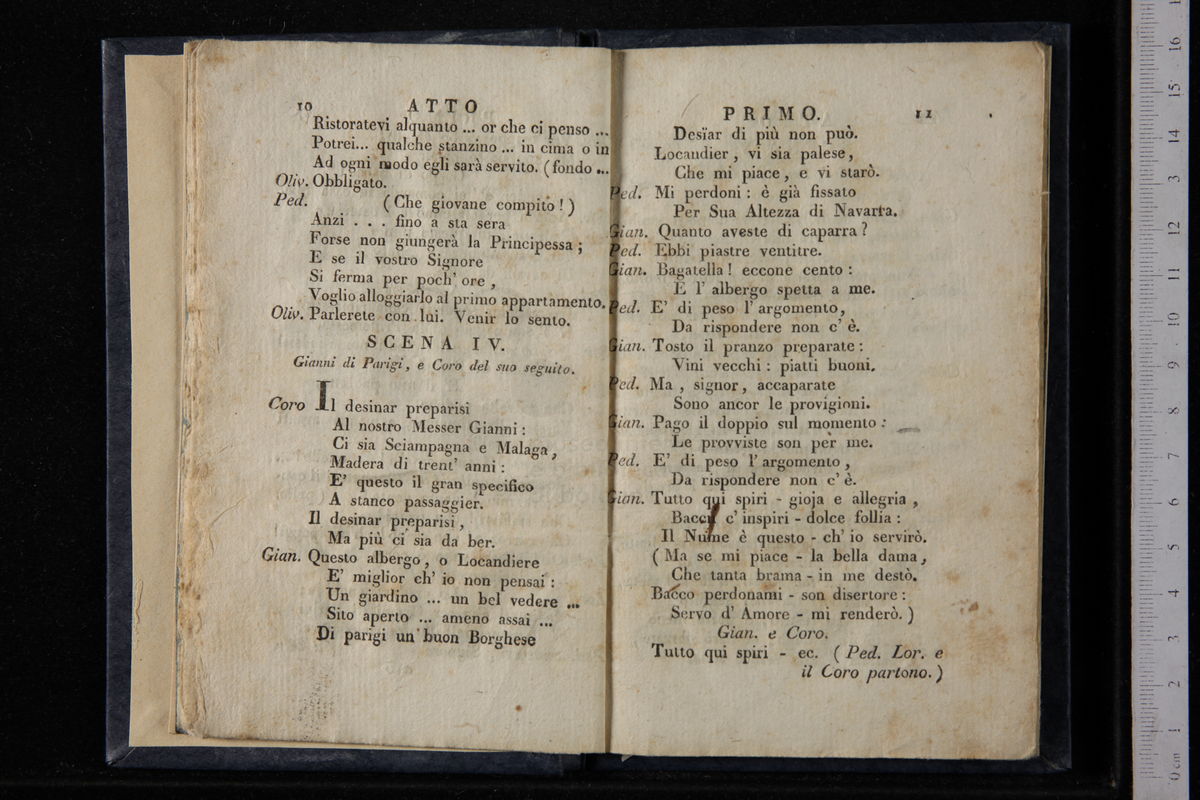 10 ATTO
Ristoratevi alquanto ... or che ci penso ...
Potrei... qualche stanzino ... in cima o in
Ad ogni modo egli sarà servito. (fondo ...
Oliv. Obbligato.
Ped. (Che giovane compito!)
Anzi . . . fino a sta sera
Forse non giungerà la Principessa;
E se il vostro Signore
Si ferma per poch' ore,
Voglio alloggiarlo al primo appartamento.
Oliv. Parlerete con lui. Venir lo sento.
SCENA IV.
Gianni di Parigi, e Coro del suo seguito.
Coro Il desinar preparisi
Al nostro Messer Gianni:
Ci sia Sciampagna e Malaga,
Madera di trent' anni:
E' questo il gran specifico
A stanco passaggier.
Il desinar preparisi,
Ma più ci sia da ber.
Gian. Questo albergo, o Locandiere
E' miglior ch' io non pensai:
Un giardino ... un bel vedere ...
Sito aperto ... ameno assai ...
Di parigi un buon Borghese
PRIMO. 11
Desïar di più non può.
Locandier, vi sia palese,
Che mi piace, e vi starò.
Ped. Mi perdoni: è già fissato
Per Sua Altezza di Navarra.
Gian. Quanto aveste di caparra?
Ped. Ebbi piastre ventitre.
Gian. Bagatella! eccone cento:
E l' albergo spetta a me.
Ped. E' di peso l' argomento,
Da rispondere non c' è.
Gian. Tosto il pranzo preparate:
Vini vecchi: piatti buoni.
Ped. Ma, signor, accaparate
Sono ancor le provigioni.
Gian. Pago il doppio sul momento:
Le provviste son per me.
Ped. E' di peso l' argomento,
Da rispondere non c' è.
Gian. Tutto qui spiri - gioja e allegria,
Bacco c' inspiri - dolce follia:
Il Nume è questo - ch' io servirò.
(Ma se mi piace - la bella dama,
Che tanta brama - in me destò.
Bacco perdonami - son disertore:
Servo d' Amore - mi renderò.)
Gian. e Coro.
Tutto qui spiri - ec. (Ped. Lor. e
il Coro partono.)
0 cm 1 2 3 4 5 6 7 8 9 10 11 12 13 14 15 16